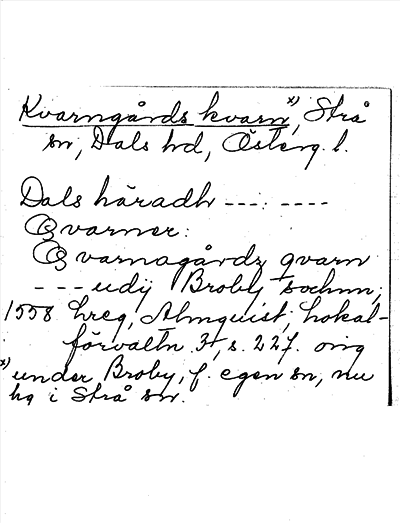 Kvarngårds kvarn x), Strå
sn, Dals hd, Österg. l.
Dals häradh ---: ----
Qvarner:
Qvarnagårdz qvarn
--- udij Broby sochnn;
1558 hreg, Almquist, Lokal-
förvaltn. 3, s. 227. orig
x) under Broby, f. egen sn, nu
hg i Strå sn.